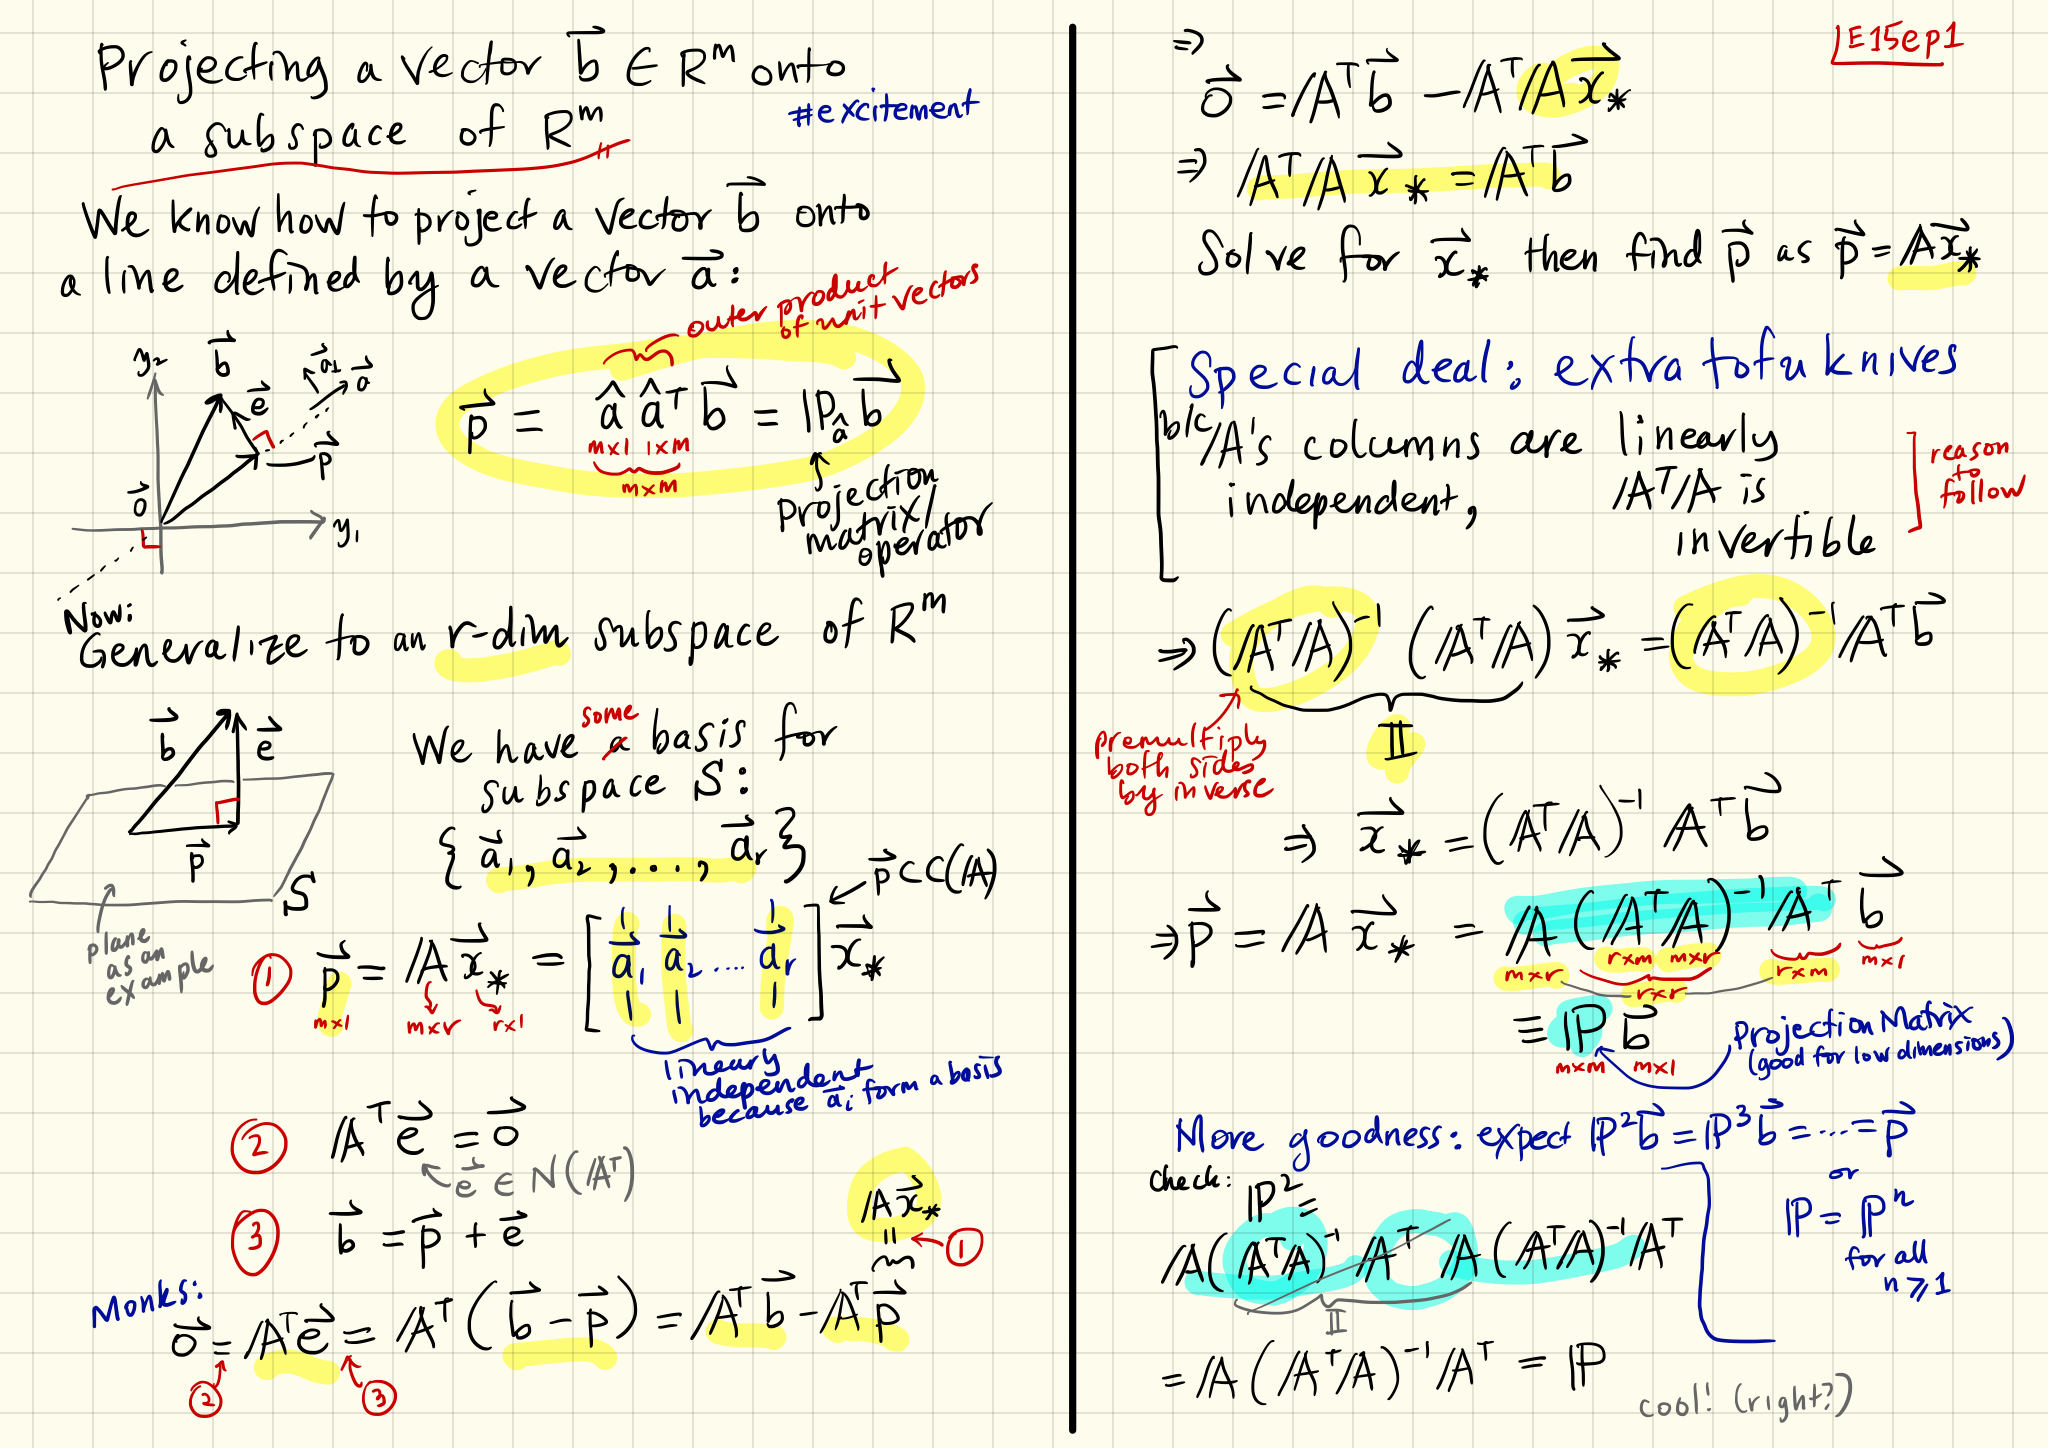 Projecting a vector b⃗ ∈ Rᵐ onto
a subspace of Rᵐ
#excitement
We know how to project a vector b⃗ onto
a line defined by a vector a⃗:
outer product
of unit vectors
y₂
b⃗
a⃗⊥
a⃗
e⃗
p⃗
o⃗
y₁
p⃗ = â âᵀ b⃗ = ℙ_â b⃗
m×1 1×m
m×m
projection
matrix/
operator
Now:
Generalize to an r-dim subspace of Rᵐ
b⃗
e⃗
p⃗
S
plane
as an
example
We have some a basis for
subspace S:
{ a⃗₁, a⃗₂, ..., a⃗ᵣ }
p⃗ ⊂ C(𝔸)
① p⃗ = 𝔸 x⃗* = [ a⃗₁ a⃗₂ .... a⃗ᵣ ] x⃗*
m×1 m×r r×1
linearly
independent
because a⃗ᵢ form a basis
② 𝔸ᵀ e⃗ = o⃗
e⃗ ∈ N(𝔸ᵀ)
③ b⃗ = p⃗ + e⃗
𝔸x⃗*
=
①
Monks:
o⃗ = 𝔸ᵀe⃗ = 𝔸ᵀ(b⃗ − p⃗) = 𝔸ᵀb⃗ − 𝔸ᵀp⃗
② ③
E15ep1
⇒
o⃗ = 𝔸ᵀb⃗ − 𝔸ᵀ𝔸x⃗*
⇒ 𝔸ᵀ𝔸 x⃗* = 𝔸ᵀb⃗
Solve for x⃗* then find p⃗ as p⃗ = 𝔸x⃗*
Special deal: extra tofu knives
b/c 𝔸's columns are linearly
independent, 𝔸ᵀ𝔸 is
invertible
reason
to
follow
⇒ (𝔸ᵀ𝔸)⁻¹ (𝔸ᵀ𝔸) x⃗* = (𝔸ᵀ𝔸)⁻¹ 𝔸ᵀb⃗
𝕀
premultiply
both sides
by inverse
⇒ x⃗* = (𝔸ᵀ𝔸)⁻¹ 𝔸ᵀb⃗
⇒ p⃗ = 𝔸 x⃗* = 𝔸(𝔸ᵀ𝔸)⁻¹𝔸ᵀ b⃗
m×r r×m m×r r×m m×1
r×r
≡ ℙ b⃗
m×m m×1
Projection Matrix
(good for low dimensions)
More goodness: expect ℙ²b⃗ = ℙ³b⃗ = .... = p⃗
or
ℙ = ℙⁿ
for all
n ⩾ 1
check:
ℙ² =
𝔸(𝔸ᵀ𝔸)⁻¹ 𝔸ᵀ 𝔸(𝔸ᵀ𝔸)⁻¹𝔸ᵀ
𝕀
= 𝔸(𝔸ᵀ𝔸)⁻¹𝔸ᵀ = ℙ
cool! (right?)